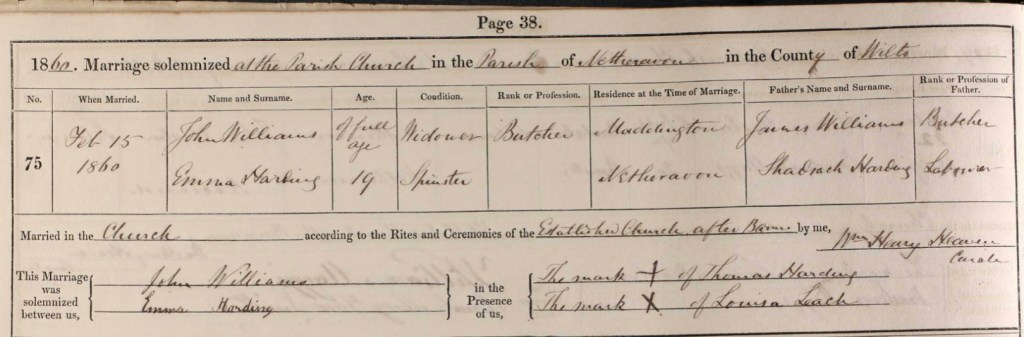 Page 38.
1860. Marriage solemnized at the Parish Church in the Parish of Netheravon in the County of Wilts
No. When Married. Name and Surname. Age. Condition. Rank or Profession. Residence at the Time of Marriage. Father's Name and Surname. Rank or Profession of Father.
75 Feb 15 1860 John Williams Of full age Widower Butcher Maddington James Williams Butcher
Emma Harding 19 Spinster Netheravon Shadrach Harding Labourer
Married in the Church according to the Rites and Ceremonies of the Established Church, after Banns by me,
Wm Henry Heaven
Curate
This Marriage was solemnized between us, John Williams Emma Harding
in the Presence of us, The mark X of Thomas Harding
The mark X of Louisa Leach